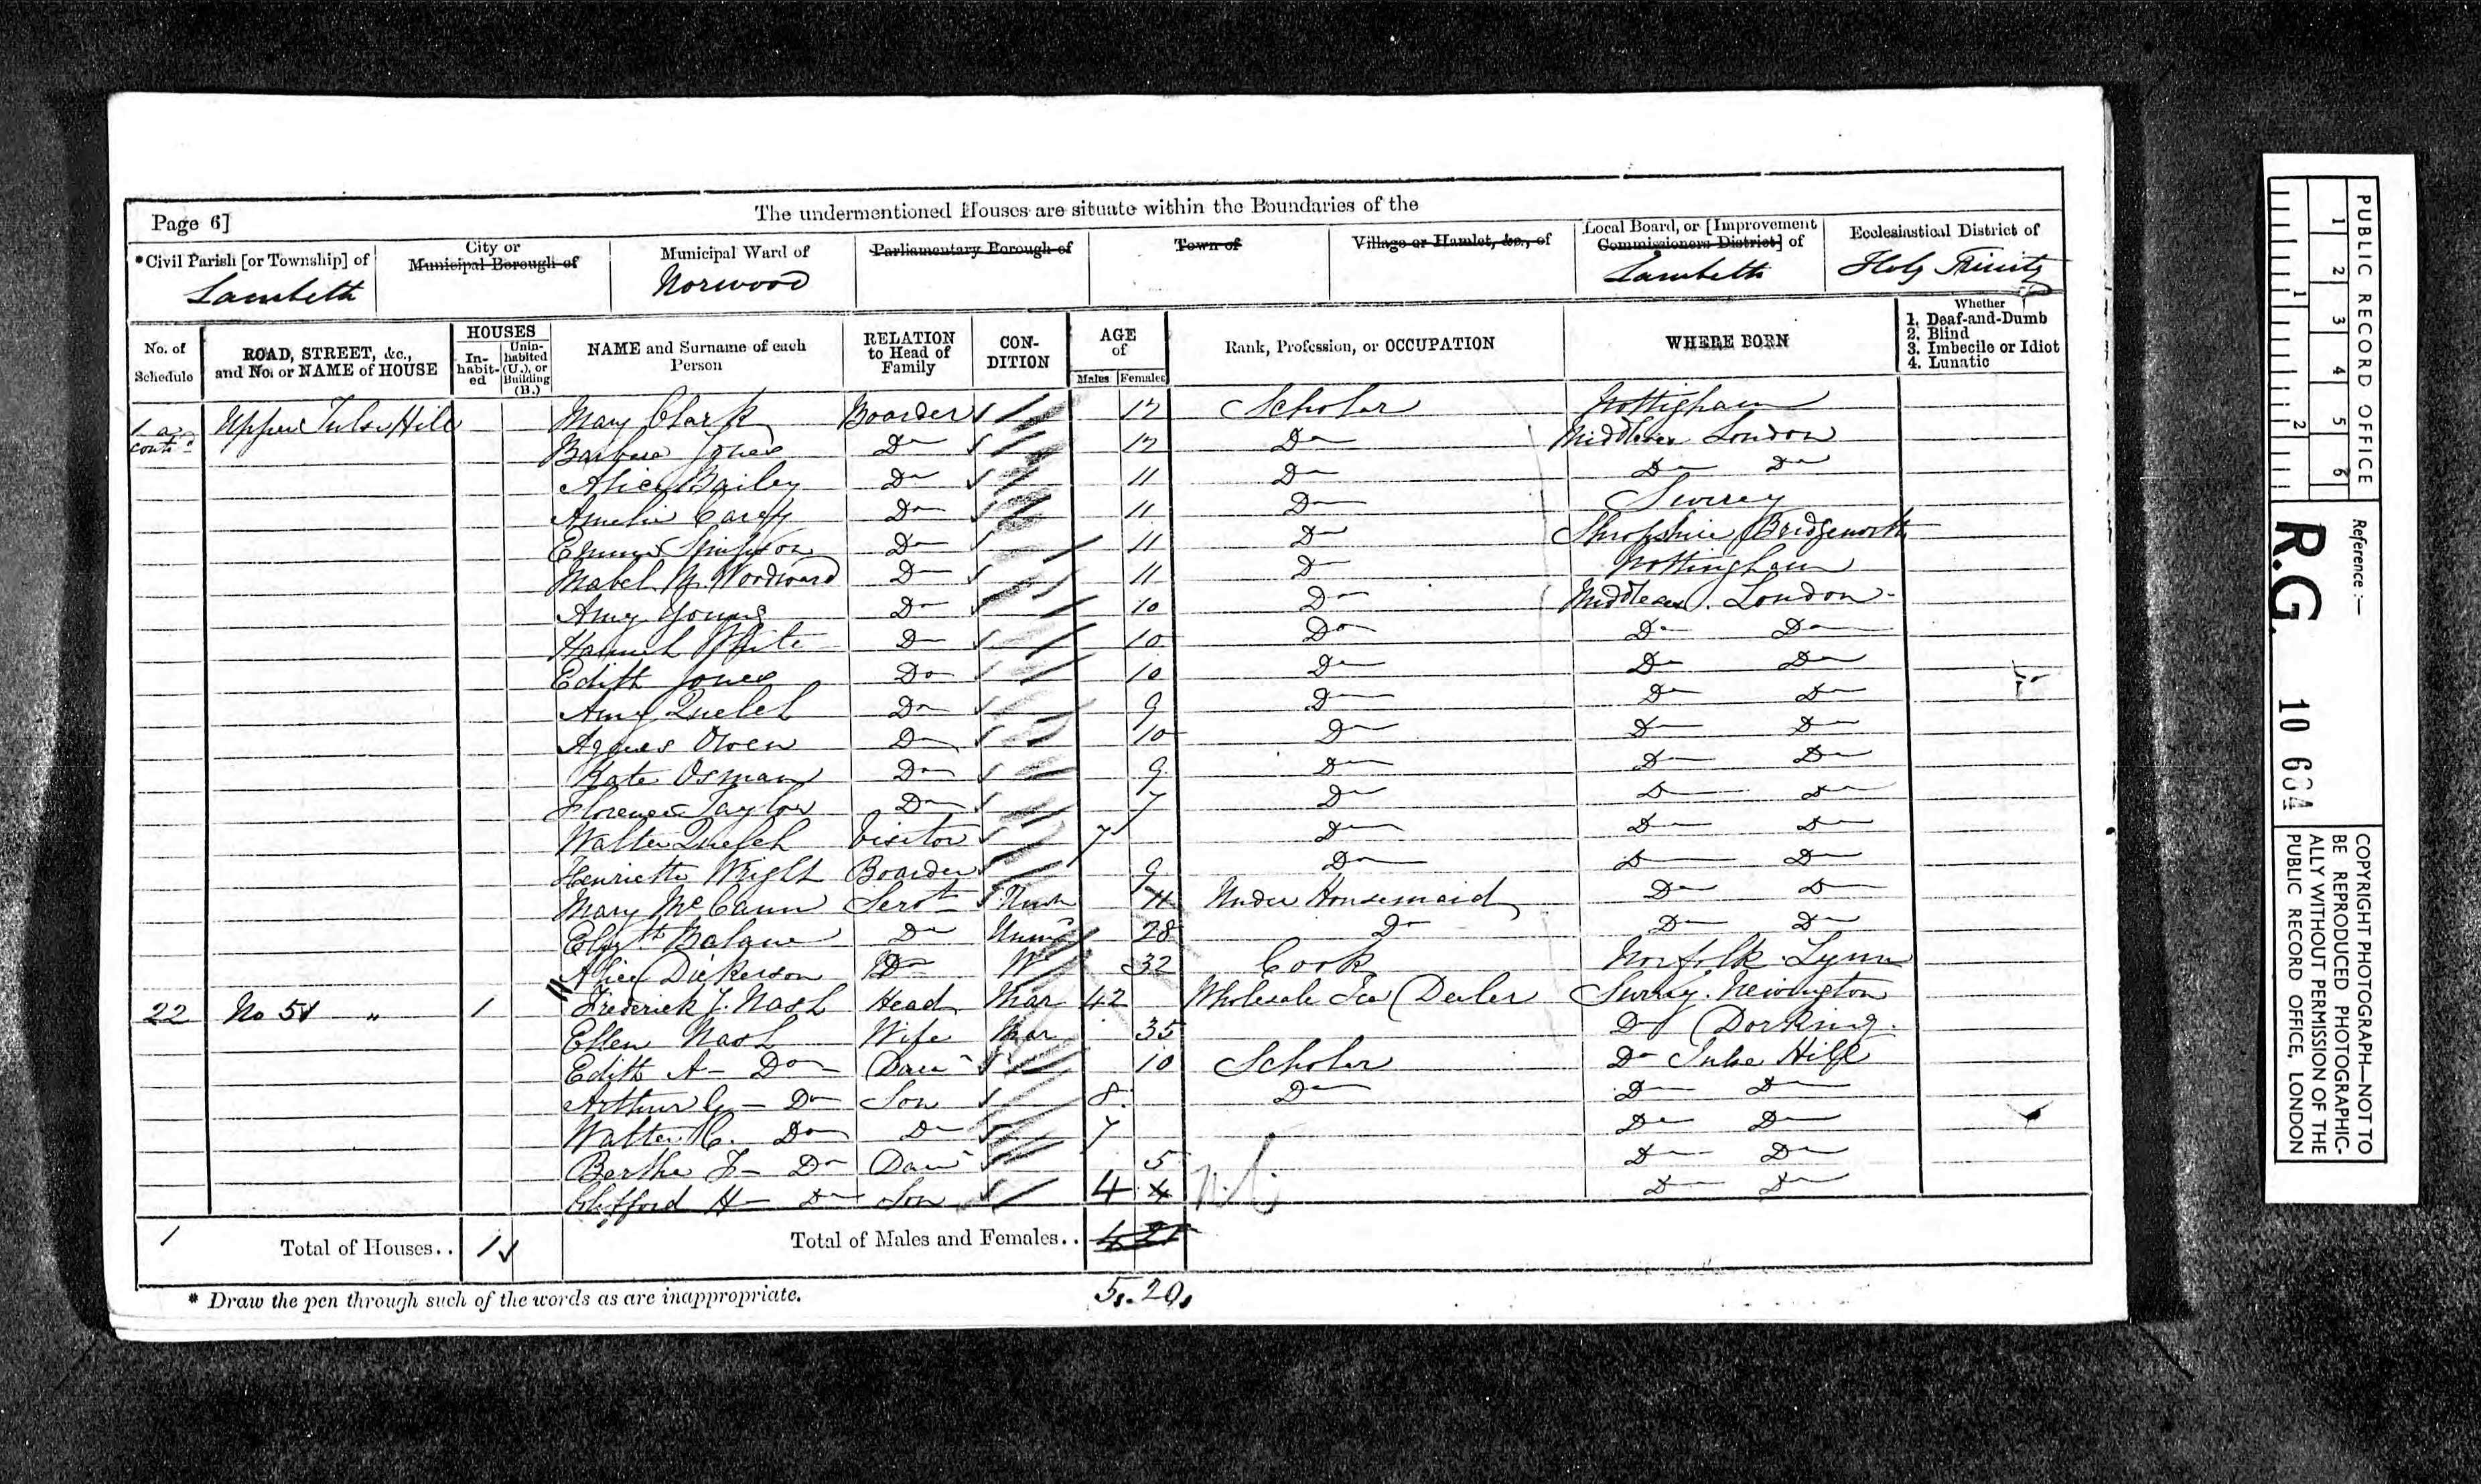 Page 6]
The undermentioned Houses are situate within the Boundaries of the
*Civil Parish [or Township] of
Lambeth
City or Municipal Borough of
Municipal Ward of
Norwood
Parliamentary Borough of
Town of
Village or Hamlet, &c., of
Local Board, or [Improvement Commissioners District] of
Lambeth
Ecclesiastical District of
Holy Trinity
No. of Schedule
ROAD, STREET, &c., and No. or NAME of HOUSE
HOUSES
In-habit-ed
Unin-habited (U.), or Building (B.)
NAME and Surname of each Person
RELATION to Head of Family
CON-DITION
AGE of
Males Females
Rank, Profession, or OCCUPATION
WHERE BORN
Whether
1. Deaf-and-Dumb
2. Blind
3. Imbecile or Idiot
4. Lunatic
contd Upper Tulse Hill Mary Clark Boarder 12 Scholar Nottigham
Barbara Jones Do 12 Do Middlesex London
Alice Bailey Do 11 Do Do Do
Amelia Carey Do 11 Do Surrey
Emma Simpson Do 11 Do Shropshire Bridgenorth
Mabel Woodward Do 11 Do Nottingham
Amy Young Do 10 Do Middlesex London
Hannah White Do 10 Do Do Do
Edith Jones Do 10 Do Do Do
Amy Quelch Do 9 Do Do Do
Agnes Owen Do 10 Do Do Do
Kate Osman Do 9 Do Do Do
Florence Taylor Do 7 Do Do Do
Walter Quelch Visitor 7 Do Do Do
Henrietta Wright Boarder 9 Do Do Do
Mary McCann Servt Unm Under Housemaid Do Do
Elizth Do Unm 28 Do Do Do
Alice Dickerson Do W 32 Cook Norfolk Lynn
22 No 51 " 1 Frederick J. Nash Head Mar 42 Wholesale Tea Dealer Surrey Newington
Ellen Nash Wife Mar 35 Do Dorking
Edith A Do Daur 10 Scholar Do Tulse Hill
Arthur G Do Son 8 Do Do Do
Walter C. Do Do 7 Do Do
Bertha F Do Daur 5 Do Do
Clifford H Do Son 4 Do Do
1 Total of Houses.. 1
Total of Males and Females.. 4 21
5. 20.
* Draw the pen through such of the words as are inappropriate.
PUBLIC RECORD OFFICE
1 2 3 4 5 6
1 2
Reference :—
R.G. 10 684
COPYRIGHT PHOTOGRAPH—NOT TO
BE REPRODUCED PHOTOGRAPHIC-
ALLY WITHOUT PERMISSION OF THE
PUBLIC RECORD OFFICE, LONDON